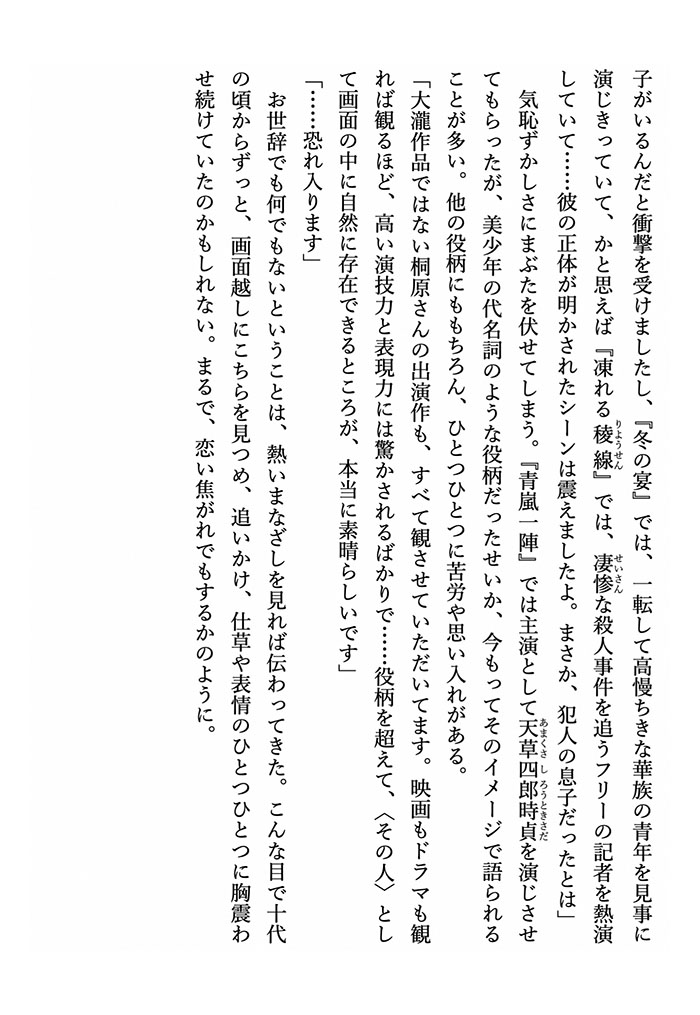 子がいるんだと衝撃を受けましたし、『冬の宴』では、一転して高慢ちきな華族の青年を見事に
演じきっていて、かと思えば『凍れる稜線』では、凄惨な殺人事件を追うフリーの記者を熱演
りようせん
せいさん
していて……彼の正体が明かされたシーンは震えましたよ。まさか、犯人の息子だったとは」
気恥ずかしさにまぶたを伏せてしまう。『青嵐一陣』では主演として天草四郎時貞を演じさせ
あまくさしろうときさだ
てもらったが、美少年の代名詞のような役柄だったせいか、今もってそのイメージで語られる
ことが多い。他の役柄にももちろん、ひとつひとつに苦労や思い入れがある。
「大瀧作品ではない桐原さんの出演作も、すべて観させていただいてます。映画もドラマも観
れば観るほど、高い演技力と表現力には驚かされるばかりで……役柄を超えて、〈その人〉とし
て画面の中に自然に存在できるところが、本当に素晴らしいです」
「……恐れ入ります」
お世辞でも何でもないということは、熱いまなざしを見れば伝わってきた。こんな目で十代
の頃からずっと、画面越しにこちらを見つめ、追いかけ、仕草や表情のひとつひとつに胸震わ
せ続けていたのかもしれない。まるで、恋い焦がれでもするかのように。